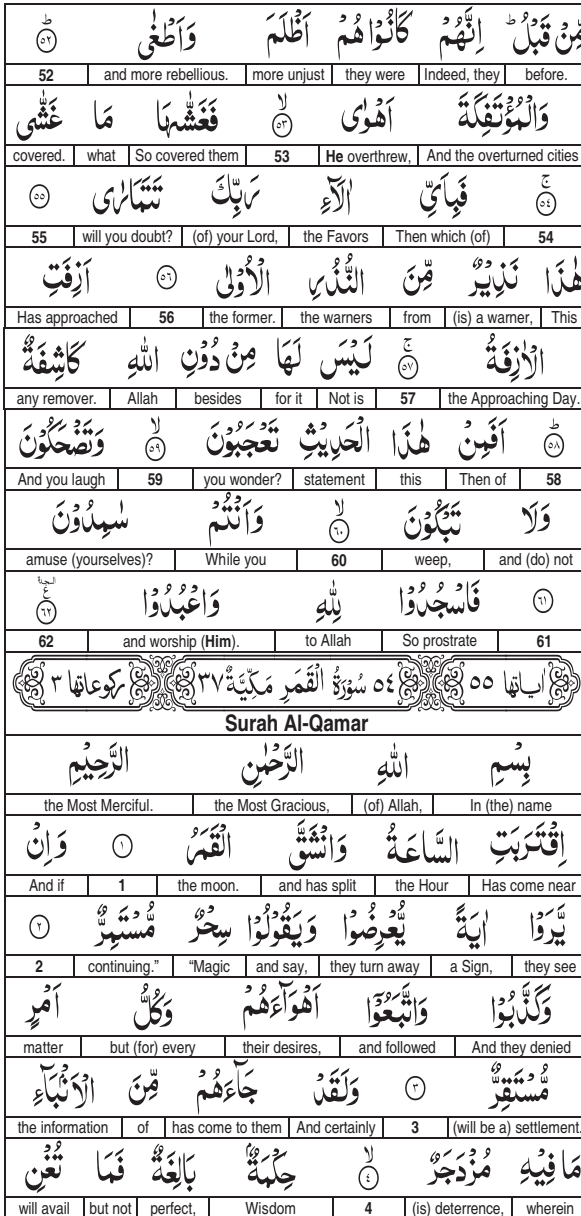 مِّنۡ قَبۡلُ ؕ اِنَّهُمۡ كَانُوۡا هُمۡ اَظۡلَمَ وَاَطۡغٰى ؕ ﴿۵۲﴾
before. | Indeed, they | they were | more unjust | and more rebellious. | 52
وَالۡمُؤۡتَفِكَةَ اَهۡوٰى ۙ ﴿۵۳﴾ فَغَشّٰٮهَا مَا غَشّٰى
And the overturned cities | He overthrew, | 53 | So covered them | what | covered.
ۚ ﴿۵۴﴾ فَبِاَىِّ اٰلَآءِ رَبِّكَ تَتَمَارٰى ﴿۵۵﴾
54 | Then which (of) | the Favors | (of) your Lord, | will you doubt? | 55
هٰذَا نَذِيۡرٌ مِّنَ النُّذُرِ الۡاُوۡلٰى ﴿۵۶﴾ اَزِفَتِ
This | (is) a warner, | from | the warners | the former. | 56 | Has approached
الۡاٰزِفَةُ ۚ ﴿۵۷﴾ لَيۡسَ لَهَا مِنۡ دُوۡنِ اللّٰهِ كَاشِفَةٌ
the Approaching Day. | 57 | Not is | for it | besides | Allah | any remover.
ؕ ﴿۵۸﴾ اَفَمِنۡ هٰذَا الۡحَدِيۡثِ تَعۡجَبُوۡنَ ۙ ﴿۵۹﴾ وَتَضۡحَكُوۡنَ
58 | Then of | this | statement | you wonder? | 59 | And you laugh
وَلَا تَبۡكُوۡنَ ۙ ﴿۶۰﴾ وَاَنۡتُمۡ سٰمِدُوۡنَ
and (do) not | weep, | 60 | While you | amuse (yourselves)?
﴿۶۱﴾ فَاسۡجُدُوۡا لِلّٰهِ وَاعۡبُدُوۡا ﴿۶۲﴾ السجدة ع
61 | So prostrate | to Allah | and worship (Him). | 62
اٰياتها ٥٥ ٥٤ سُوۡرَةُ الۡقَمَرِ مَكِّيَّةٌ ٣٧ ركوعاتها ٣
Surah Al-Qamar
بِسۡمِ اللّٰهِ الرَّحۡمٰنِ الرَّحِيۡمِ
In (the) name | (of) Allah, | the Most Gracious, | the Most Merciful.
اِقۡتَرَبَتِ السَّاعَةُ وَانْشَقَّ الۡقَمَرُ ﴿۱﴾ وَاِنۡ
Has come near | the Hour | and has split | the moon. | 1 | And if
يَّرَوۡا اٰيَةً يُّعۡرِضُوۡا وَيَقُوۡلُوۡا سِحۡرٌ مُّسۡتَمِرٌّ ﴿۲﴾
they see | a Sign, | they turn away | and say, | “Magic | continuing.” | 2
وَكَذَّبُوۡا وَاتَّبَعُوۡۤا اَهۡوَآءَهُمۡ وَكُلُّ اَمۡرٍ
And they denied | and followed | their desires, | but (for) every | matter
مُّسۡتَقِرٌّ ﴿۳﴾ وَلَقَدۡ جَآءَهُمۡ مِّنَ الۡاَنۡۢبَآءِ
(will be a) settlement. | 3 | And certainly | has come to them | of | the information
مَا فِيۡهِ مُزۡدَجَرٌ ۙ ﴿۴﴾ حِكۡمَةٌۢ بَالِغَةٌ فَمَا تُغۡنِ
wherein | (is) deterrence, | 4 | Wisdom | perfect, | but not | will avail